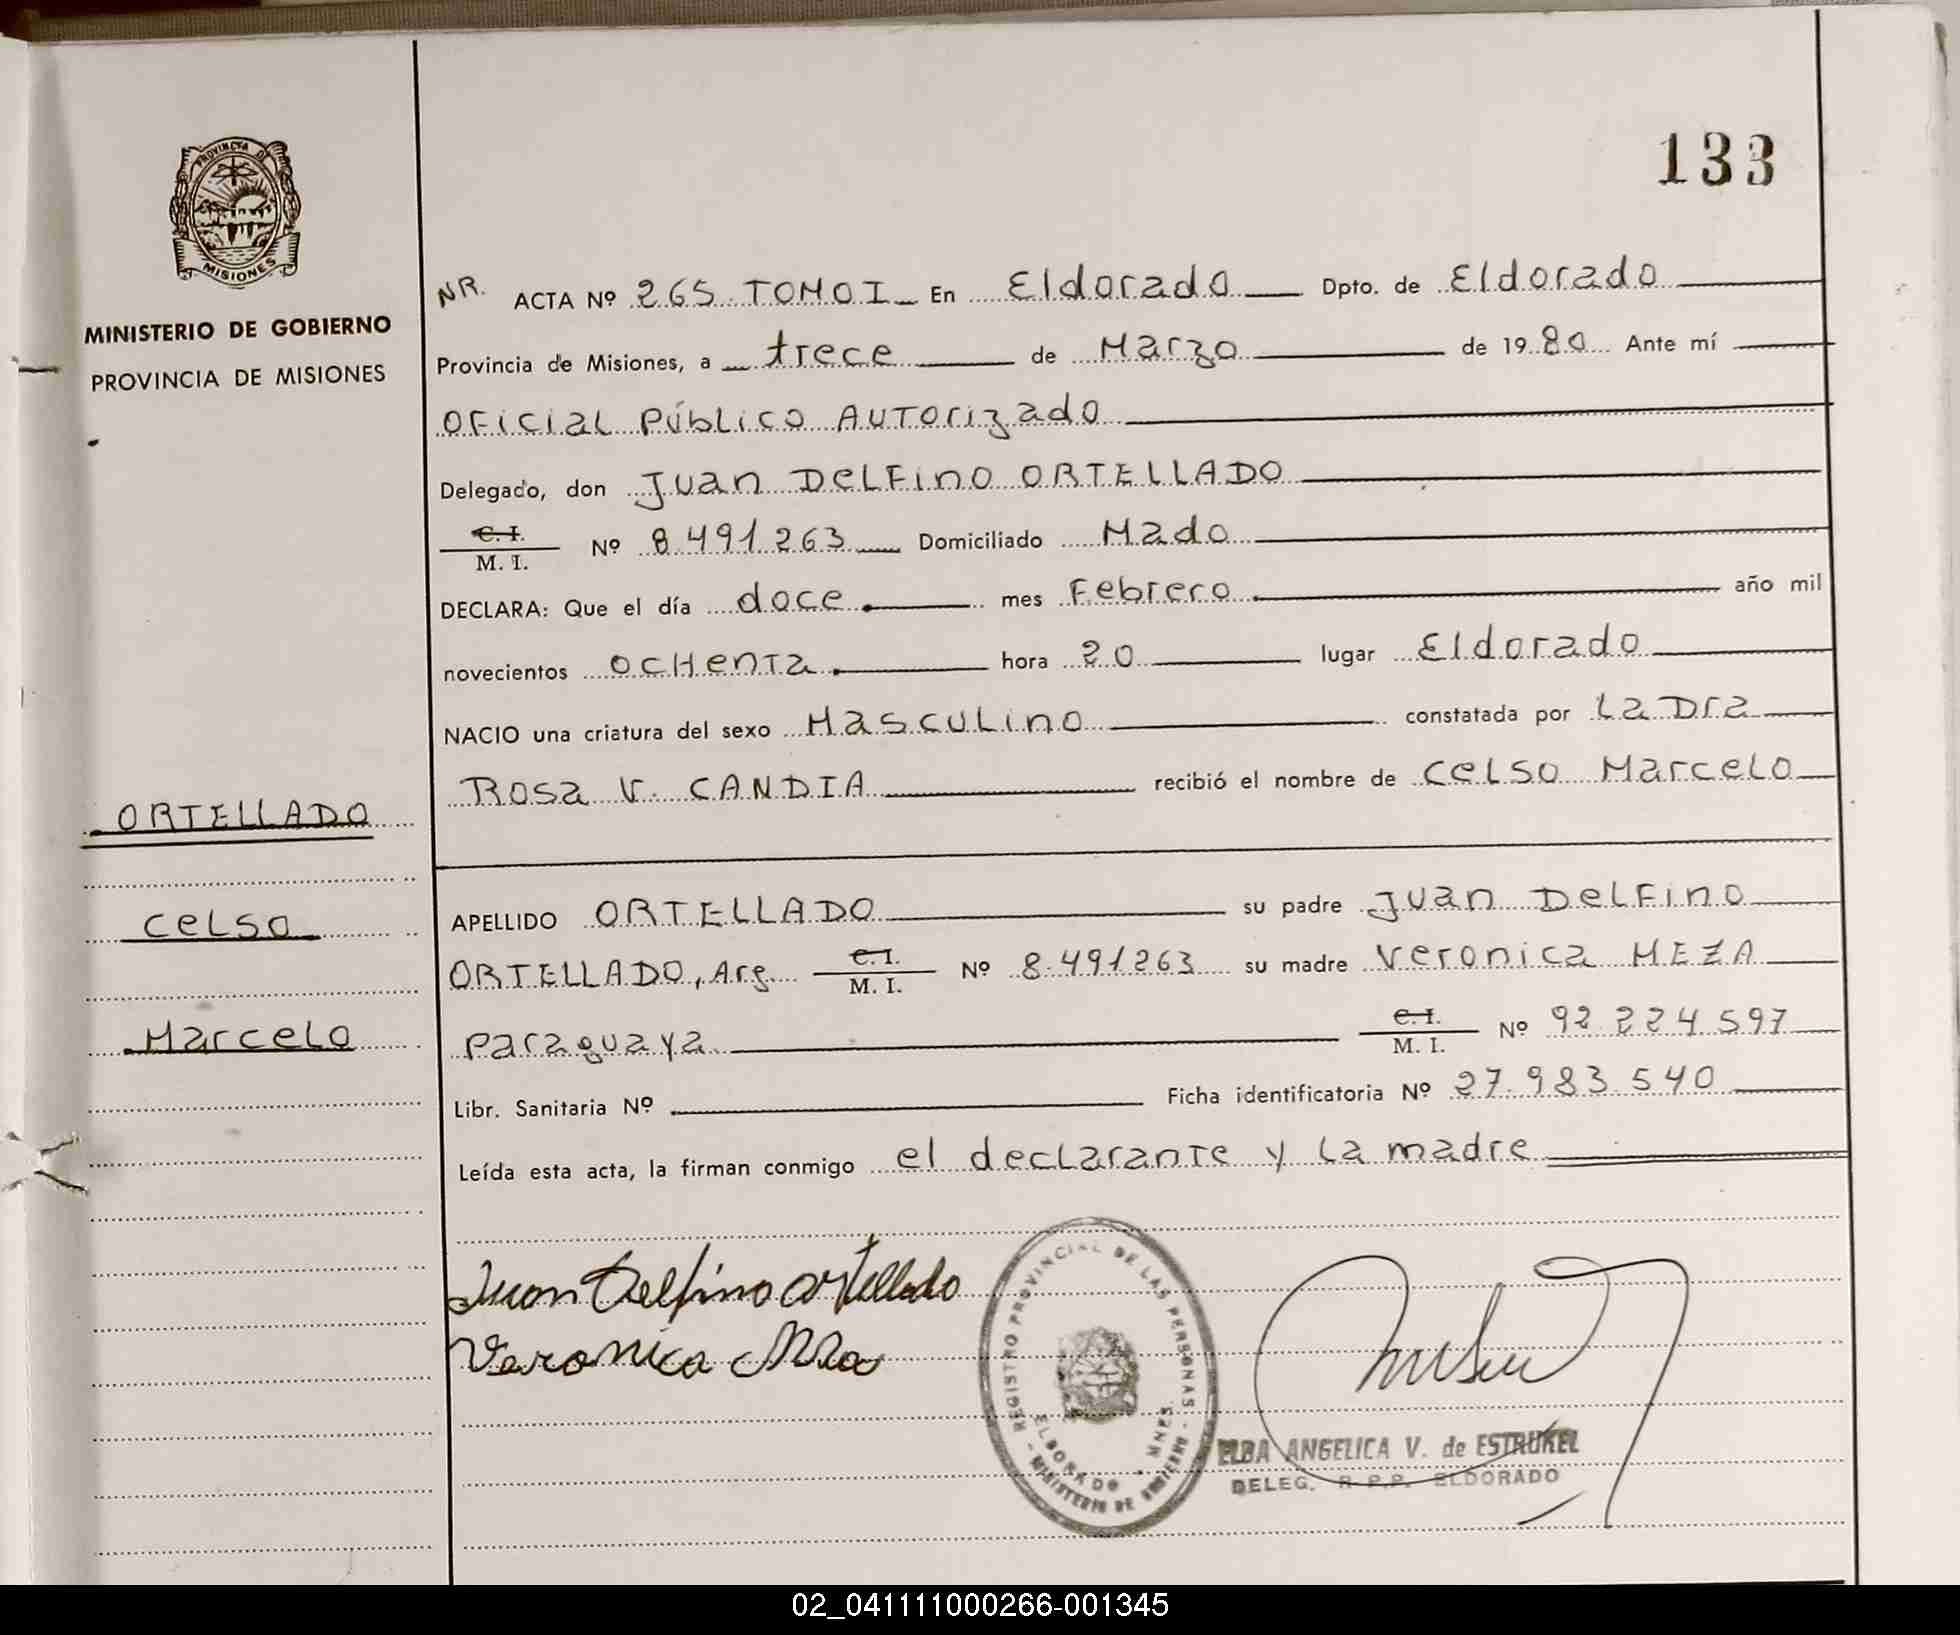 133
PROVINCIA DE
MISIONES
MINISTERIO DE GOBIERNO
PROVINCIA DE MISIONES
ORTELLADO
Celso
Marcelo
NR. ACTA Nº 265 TOMO I En Eldorado Dpto. de Eldorado
Provincia de Misiones, a trece de Marzo de 1980 Ante mí
Oficial Público Autorizado
Delegado, don Juan Delfino ORTELLADO
C. I.
M. I. Nº 8.491.263 Domiciliado Mado
DECLARA: Que el día doce mes Febrero año mil
novecientos ochenta hora 20 lugar Eldorado
NACIO una criatura del sexo Masculino constatada por La Dra
Rosa V. CANDIA recibió el nombre de Celso Marcelo
APELLIDO ORTELLADO su padre Juan Delfino
ORTELLADO, Arg. C. I. M. I. Nº 8.491263 su madre Veronica MEZA
Paraguaya C. I. M. I. Nº 92.224.597
Libr. Sanitaria Nº Ficha identificatoria Nº 27.983.540
Leída esta acta, la firman conmigo el declarante y la madre
Juan Delfino Ortellado
Veronica
REGISTRO PROVINCIAL DE LAS PERSONAS - MINISTERIO DE GOBIERNO -
ELDORADO - MNES.
ELBA ANGELICA V. de ESTRUKEL
DELEG. R.P.P. ELDORADO
02_041111000266-001345